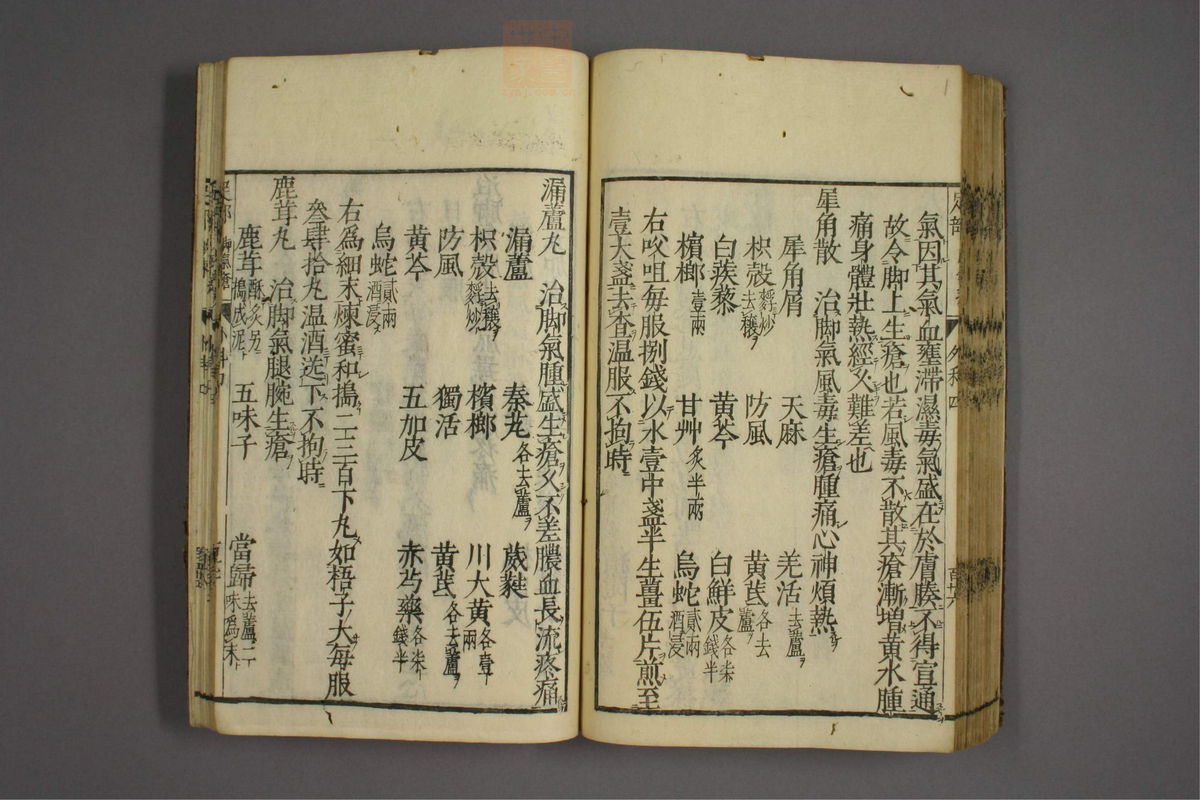 氣因其氣血壅滯濕毒氣盛在於膚腠不得宣通
故令脚上生瘡也若風毒不散其瘡漸增黃水腫
痛身體壯熱經久難差也
犀角散　治脚氣風毒生瘡腫痛心神煩熱
犀角屑　天麻　羌活去蘆
枳殼麩炒去穰　防風　黃芪各去蘆
白蒺藜　黃芩　白鮮皮各柒錢半
檳榔壹兩　甘艸炙半兩　烏蛇貳兩酒浸
右㕮咀每服捌錢以水壹中盞半生薑伍片煎至
壹大盞去柤温服不拘時
漏蘆丸　治脚氣腫盛生瘡久不差膿血長流疼痛
漏蘆　秦艽各去蘆　葳蕤
枳殼去穰麩炒　檳榔　川大黃各壹兩
防風　獨活　黃芪各去蘆
黃芩　五加皮　赤芍藥各柒錢半
烏蛇貳兩酒浸
右爲細末煉蜜和搗二三百下丸如梧子大每服
叁肆拾丸温酒送下不拘時
鹿茸丸　治脚氣腿腕生瘡
鹿茸酥炙另搗成泥　五味子　當歸去蘆二味爲末